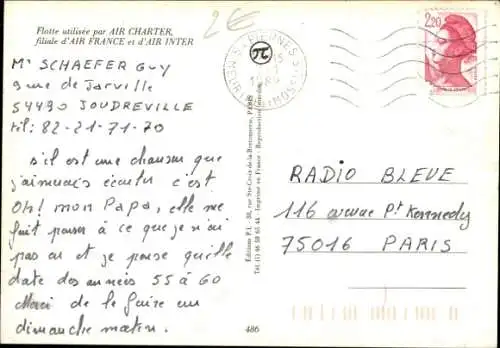 Flotte utilisée par AIR CHARTER,
filiale d'AIR FRANCE et d'AIR INTER
2€
2,20
Mr SCHAEFER GUY
9 rue de Jarville
54490 JOUDREVILLE
tél: 82-21-71-70
s'il est une chanson que
j'aimerais écouter c'est
Oh! mon Papa, elle me
fait penser à ce que je n'ai
pas eu et je pense qu'elle
date des années 55 à 60
Merci de le faire un
dimanche matin.
RADIO BLEUE
116 avenue Pt Kennedy
75016 PARIS
Editions P.I. - 30, rue Ste-Croix-de-la-Bretonnerie, PARIS
Tél. (1) 46 58 65 44 - Imprimé en France - Reproduction
486